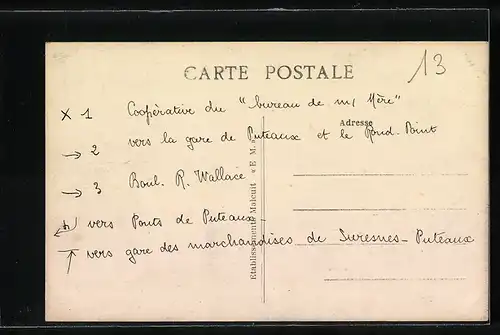 CARTE POSTALE
13
X 1 Coopérative du "bureau de m/ Mère"
Adresse
→ 2 vers la gare de Puteaux et le Rond-Point
→ 3 Boul. R. Wallace
vers Ponts de Puteaux
↑ vers gare des marchandises de Suresnes-Puteaux
Etablissements Malcuit « E. M. »